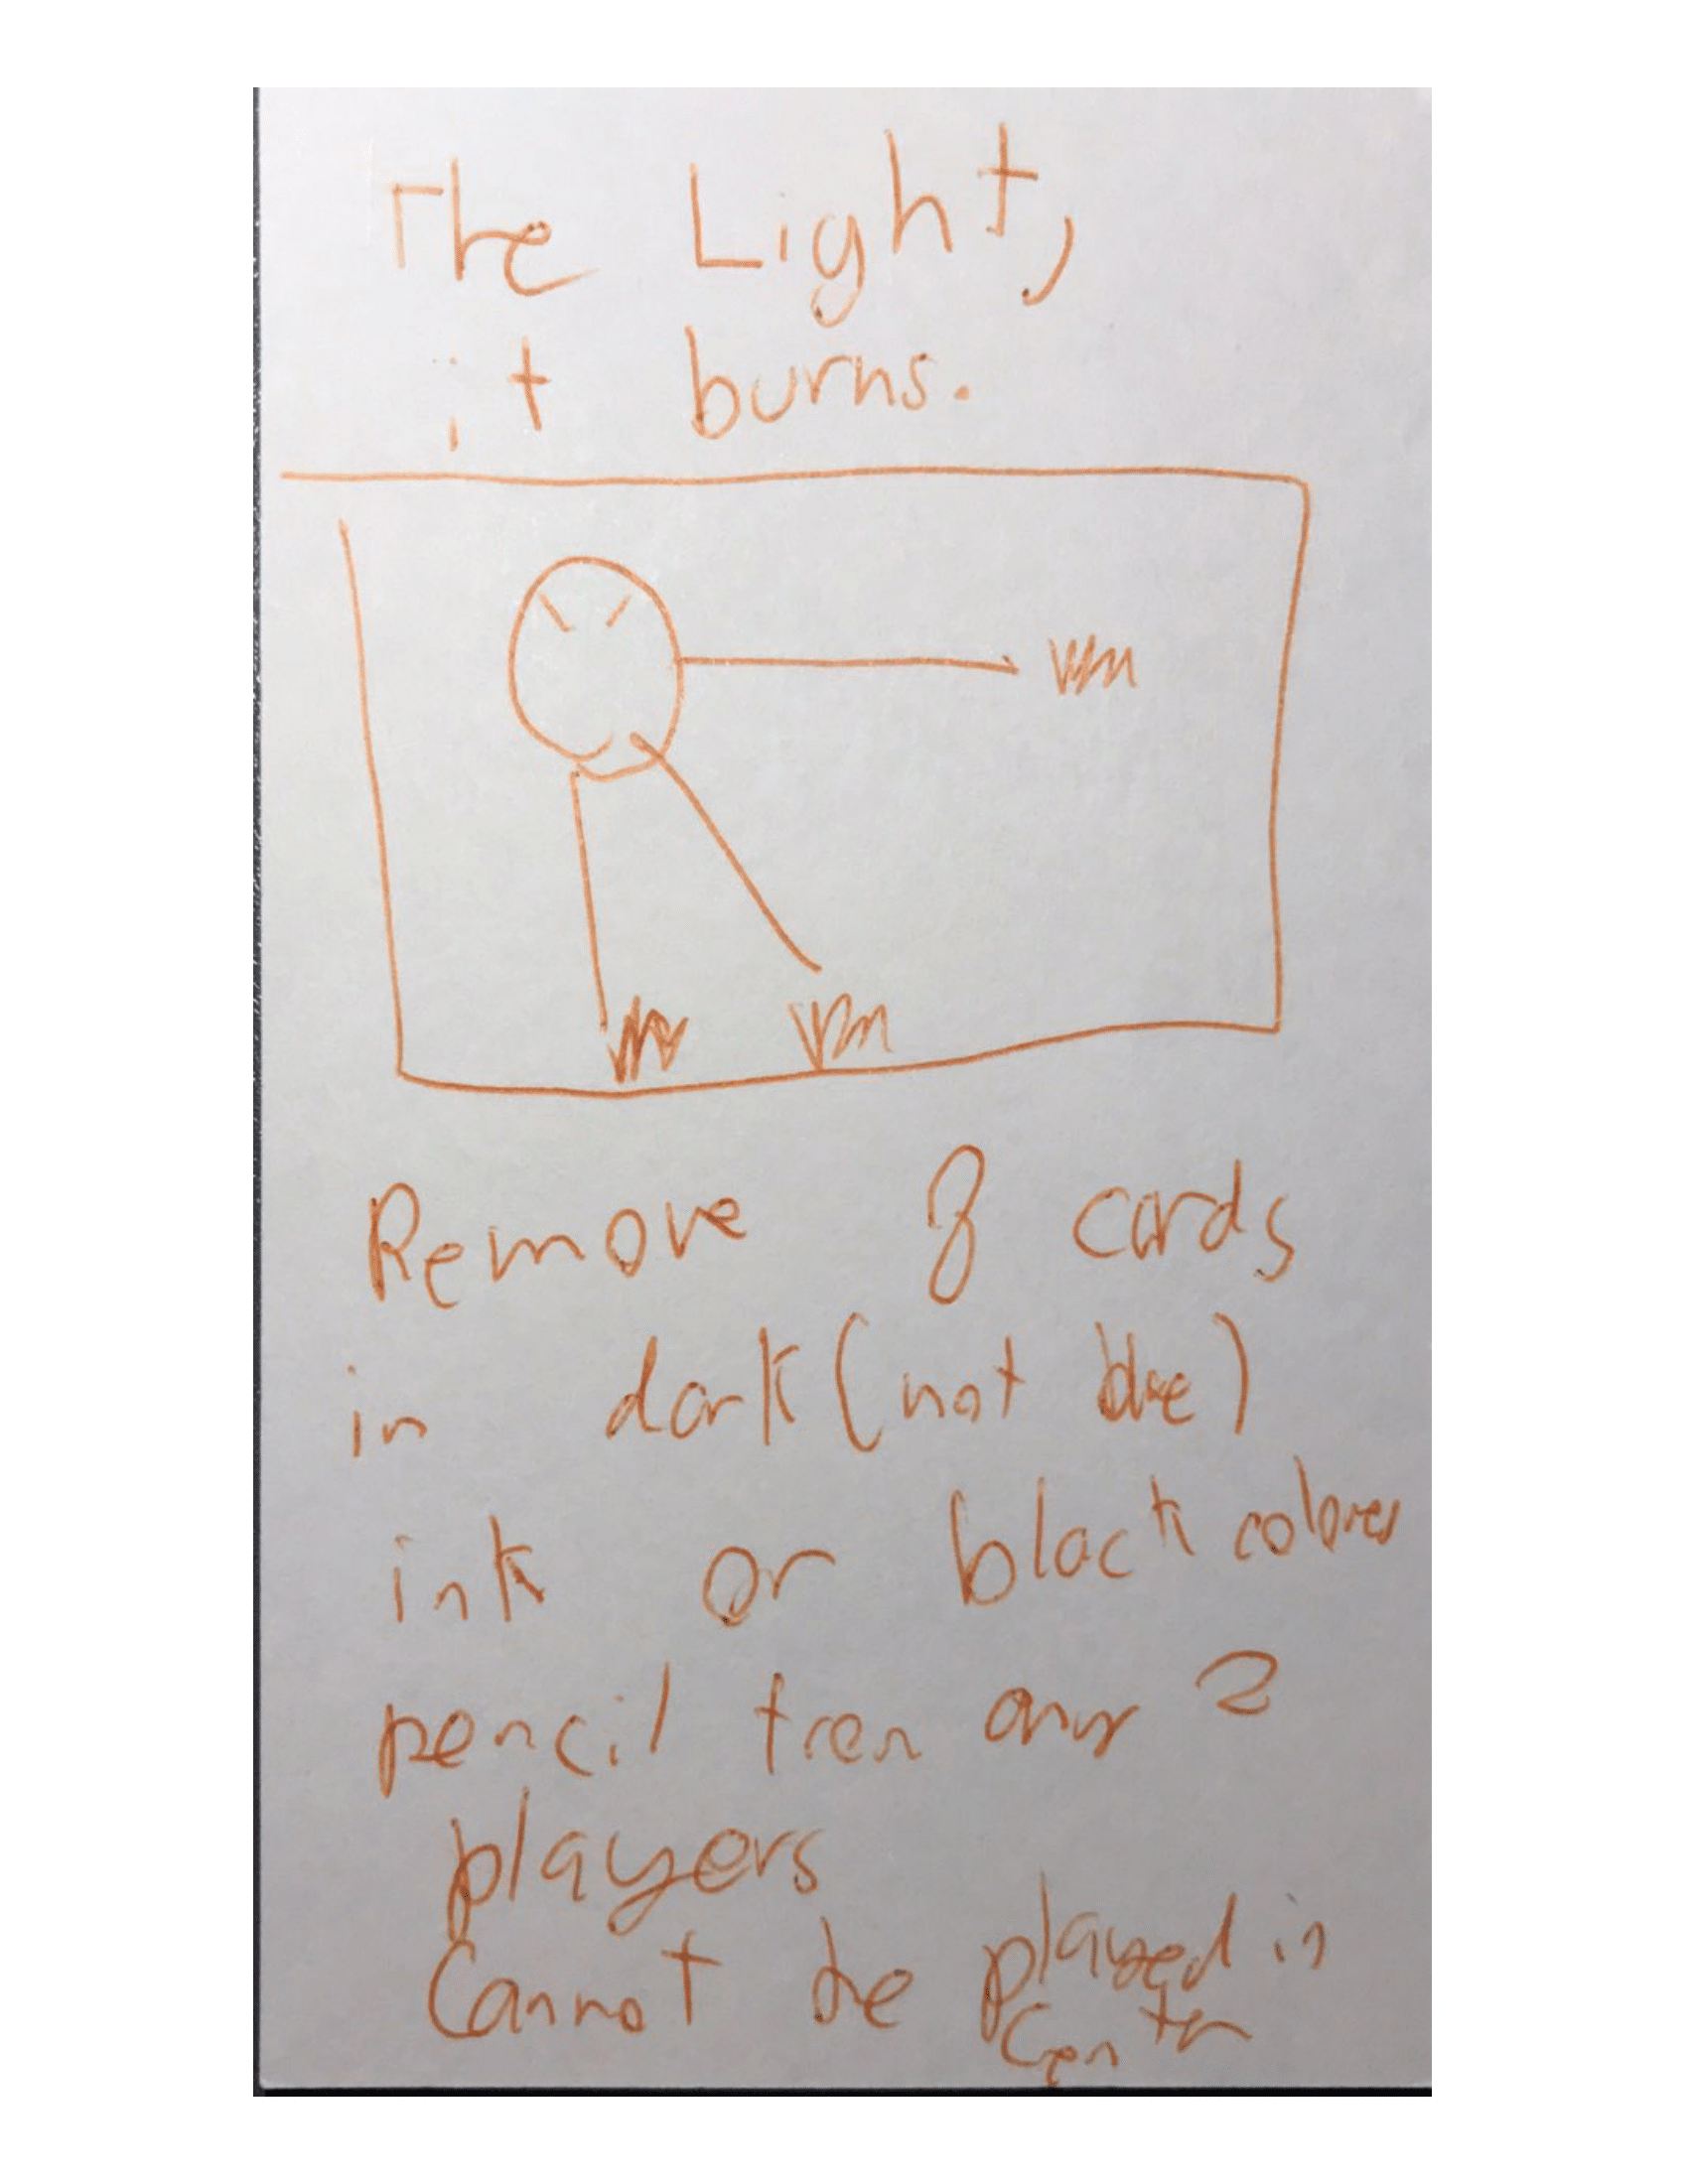 The Light,
it burns.
Remove 8 cards
in dark (not blue)
ink or black colored
pencil from any 2
players
Cannot be played in
Center